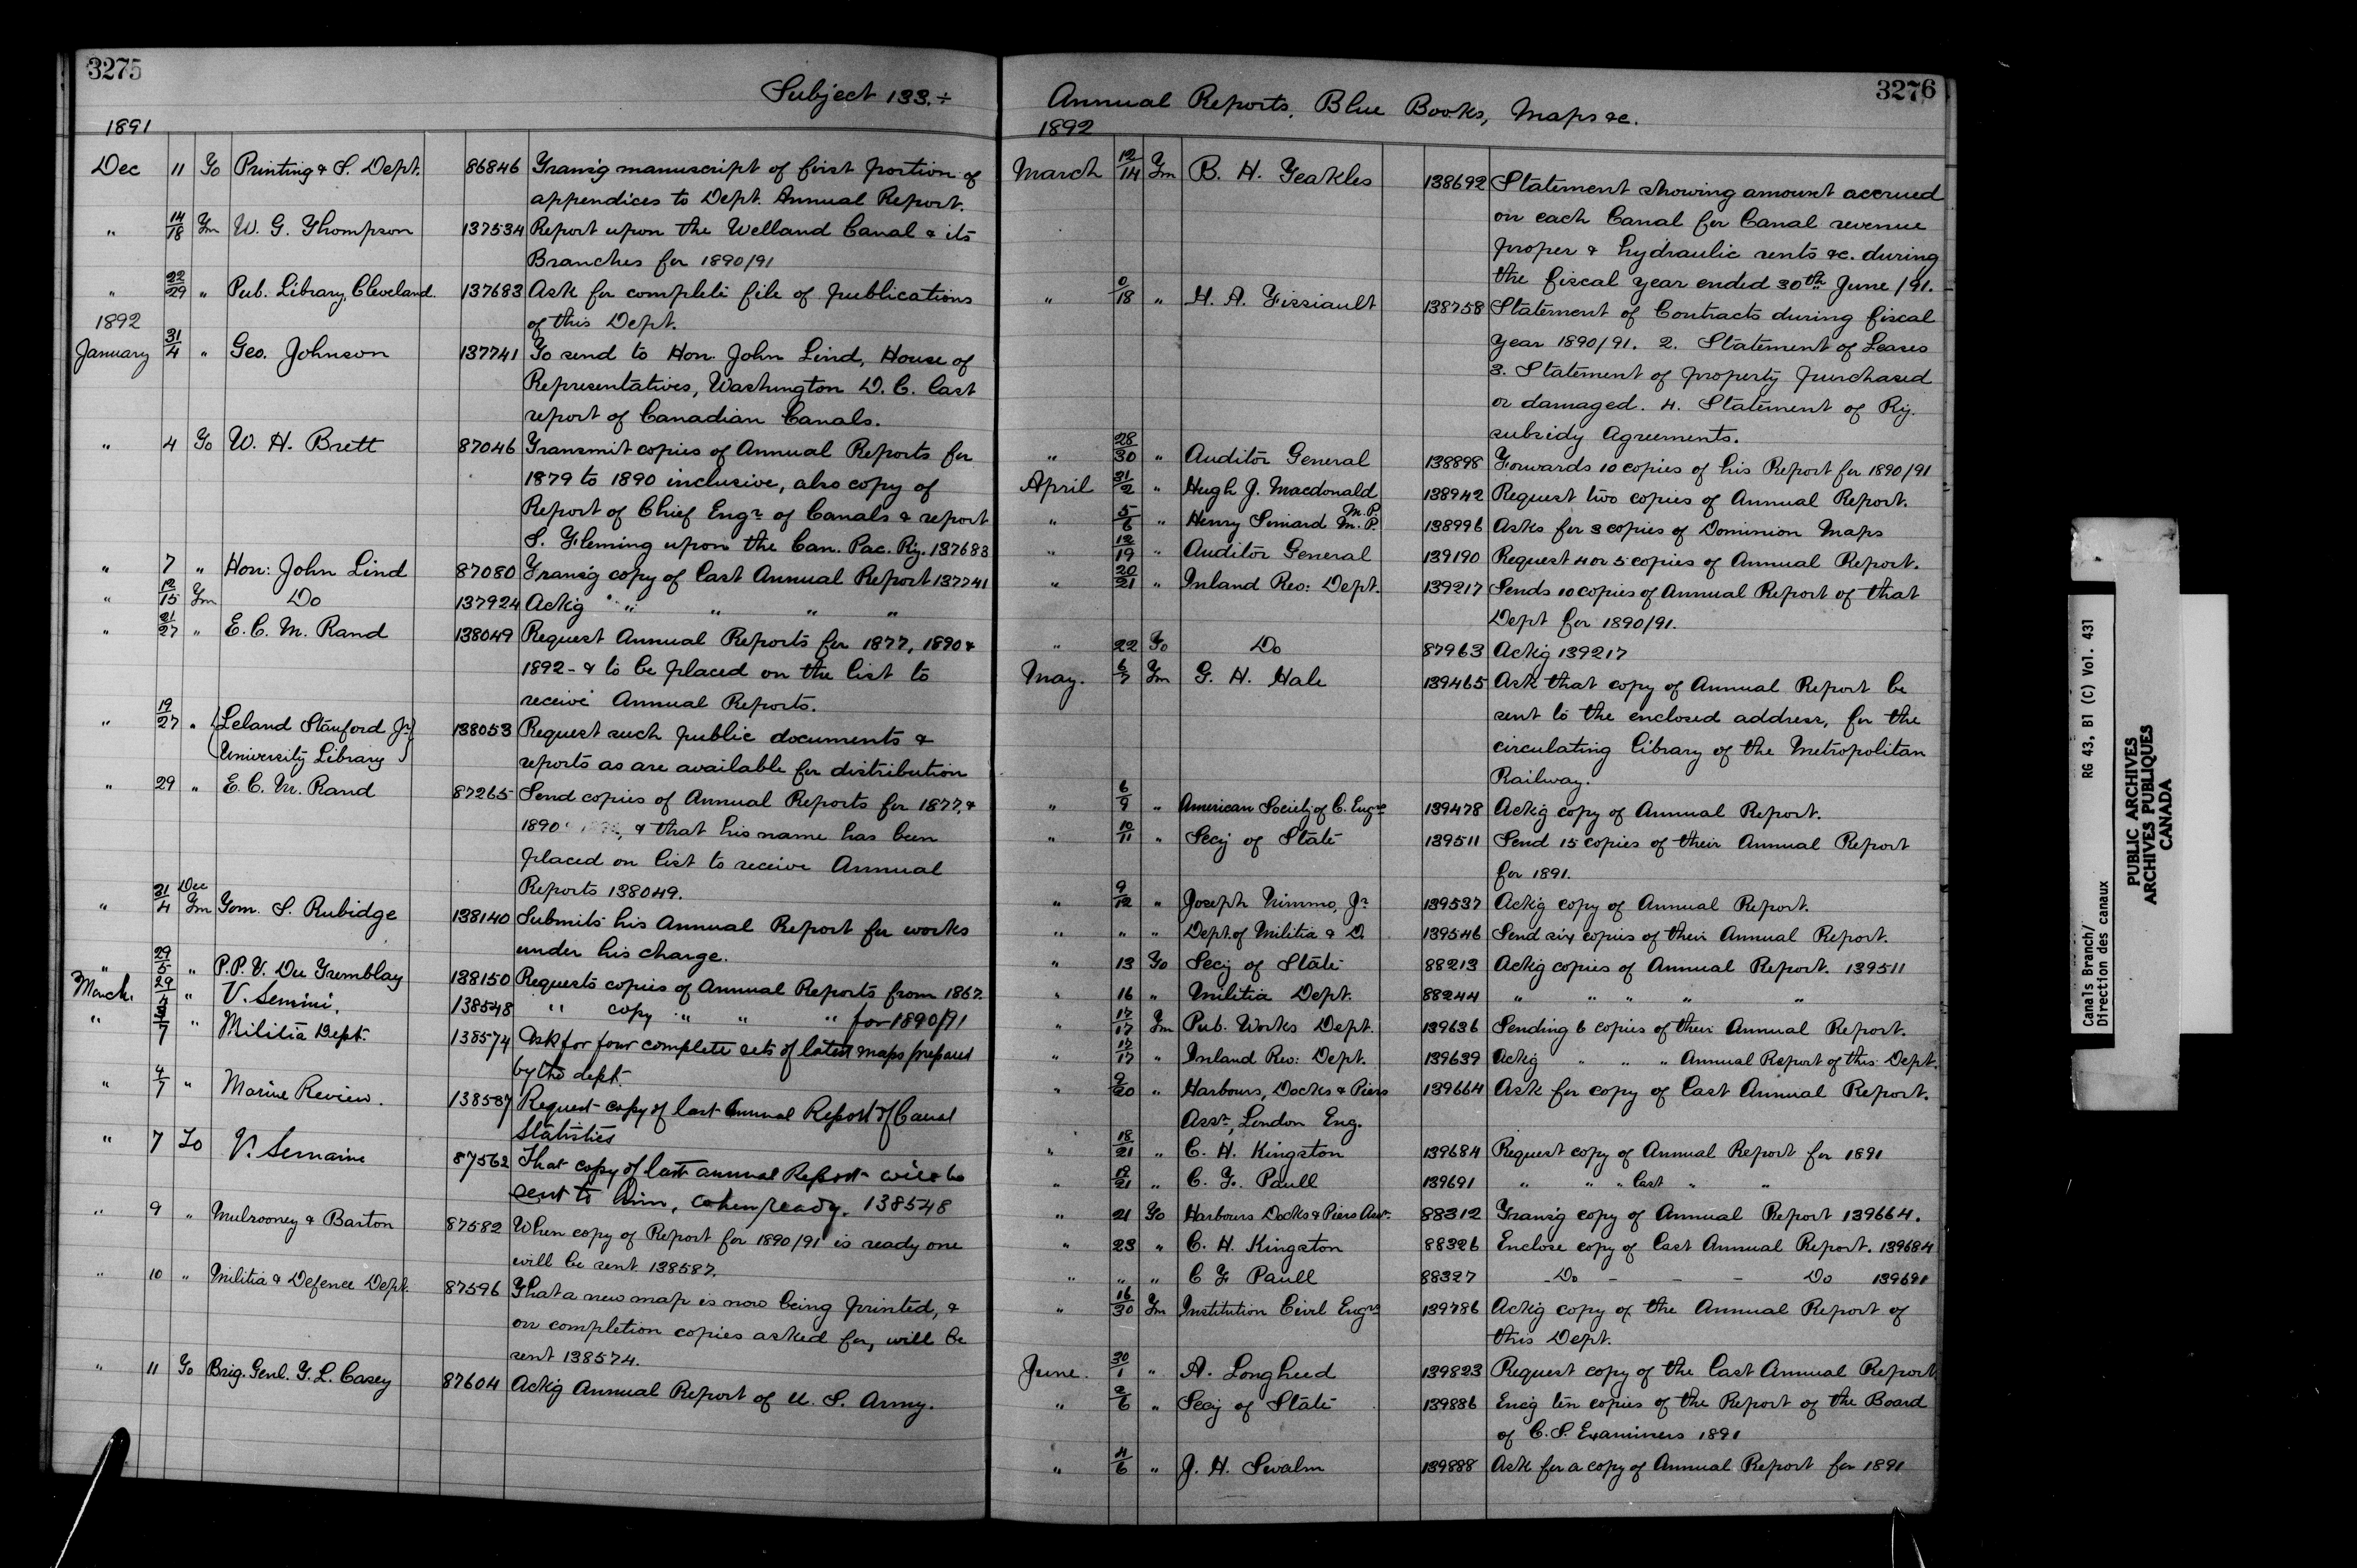 3275
Subject 133.÷
1891
Dec 11 To Printing & S. Dept. 86846 Trans'g manuscript of first portion of
appendices to Dept. Annual Report.
" 14/18 Fm W. G. Thompson 137534 Report upon the Welland Canal & its
Branches for 1890/91
" 22/29 " Pub. Library, Cleveland. 137683 Ask for complete file of publications
of this Dept.
1892
January 31/4 " Geo. Johnson 137741 To send to Hon. John Lind, House of
Representatives, Washington D. C. last
report of Canadian Canals.
" 4 To W. H. Brett 87046 Transmit copies of Annual Reports for
1879 to 1890 inclusive, also copy of
Report of Chief Engr. of Canals & report
S. Fleming upon the Can. Pac. Ry. 137683
" 7 " Hon: John Lind 87080 Trans'g copy of last Annual Report 137741
" 12/15 Fm Do 137924 Ack'g " " " " "
" 21/27 " E. C. M. Rand 138049 Request Annual Reports for 1877, 1890 &
1892 - & to be placed on the list to
receive Annual Reports.
" 19/27 " Leland Stanford Jr. 138053 Request such public documents &
University Library reports as are available for distribution
" 29 " E. C. M. Rand 87265 Send copies of Annual Reports for 1877, &
1890 & that his name has been
placed on list to receive Annual
Reports 138049.
" 31/4 Dec Fm Tom. S. Rubidge 138140 Submits his Annual Report for works
under his charge.
" 29/5 " P.P.V. Du Tremblay 138150 Requests copies of Annual Reports from 1867.
March. 29/4 " V. Semini. 138548 " copy " " " for 1890/91
" 3/7 " Militia Dept. 138574 Ask for four complete sets of latest maps prepared
by the dept.
" 4/7 " Marine Review. 138587 Request copy of last Annual Report of Canal
Statistics
" 7 To V. Semaine 87562 That copy of last annual Report will be
sent to him, when ready. 138548
" 9 " Mulrooney & Barton 87582 When copy of Report for 1890/91 is ready one
will be sent 138587.
" 10 " Militia & Defence Dept. 87596 That a new map is now being printed, &
on completion copies asked for, will be
sent 138574.
" 11 To Brig. Genl. T. L. Casey 87604 Ack'g Annual Report of U. S. Army.
3276
Annual Reports, Blue Books, Maps &c.
1892
March 12/14 Fm B. H. Teakles 138692 Statement showing amount accrued
on each Canal for Canal revenue
proper & hydraulic rents &c. during
the fiscal year ended 30th June /91.
" 0/18 " H. A. Fissiault 138758 Statement of Contracts during fiscal
year 1890/91. 2. Statement of Leases
3. Statement of property purchased
or damaged. 4. Statement of Ry.
subsidy Agreements.
" 28/30 " Auditor General 138898 Forwards 10 copies of his Report for 1890/91
April 31/2 " Hugh J. Macdonald M.P. 138942 Request two copies of Annual Report.
" 5/6 " Henry Simard M.P. 138996 Asks for 3 copies of Dominion Maps
" 12/19 " Auditor General 139190 Request 4 or 5 copies of Annual Report.
" 20/21 " Inland Rev: Dept. 139217 Sends 10 copies of Annual Report of that
Dept for 1890/91.
" 22 To Do 87963 Ack'g 139217
May. 6/7 Fm G. H. Hale 139465 Ask that copy of Annual Report be
sent to the enclosed address, for the
circulating library of the Metropolitan
Railway.
" 6/9 " American Society of C. Engrs 139478 Ack'g copy of Annual Report.
" 10/11 " Secy of State 139511 Send 15 copies of their Annual Report
for 1891.
" 9/12 " Joseph Nimmo, Jr 139537 Ack'g copy of Annual Report.
" " " Dept. of Militia & D. 139546 Send six copies of their Annual Report.
" 13 To Secy of State 88213 Ack'g copies of Annual Report. 139511
" 16 " Militia Dept. 88244 " " " " "
" 17/17 Fm Pub. Works Dept. 139636 Sending 6 copies of their Annual Report.
" 17/17 " Inland Rev: Dept. 139639 Ack'g " " " Annual Report of this Dept.
" 9/20 " Harbours, Docks & Piers 139664 Ask for copy of last Annual Report.
Assn., London Eng.
" 18/21 " C. H. Kingston 139684 Request copy of Annual Report for 1891
" 19/21 " C. F. Paull 139691 " " " last " "
" 21 To Harbours Docks & Piers Assn. 88312 Trans'g copy of Annual Report 139664.
" 23 " C. H. Kingston 88326 Enclose copy of last Annual Report. 139684
" " " C F Paull 88327 - Do - - - Do 139691
" 16/30 Fm Institution Civil Engrs 139786 Ack'g copy of the Annual Report of
this Dept.
June. 30/1 " A. Longheed 139823 Request copy of the last Annual Report
" 2/6 " Secy of State 139886 Enc'g ten copies of the Report of the Board
of C. S. Examiners 1891
" 4/6 " J. H. Swalm 139888 Ask for a copy of Annual Report for 1891
Canals Branch/ RG 43, B1 (C) Vol. 431
Direction des canaux
PUBLIC ARCHIVES
ARCHIVES PUBLIQUES
CANADA